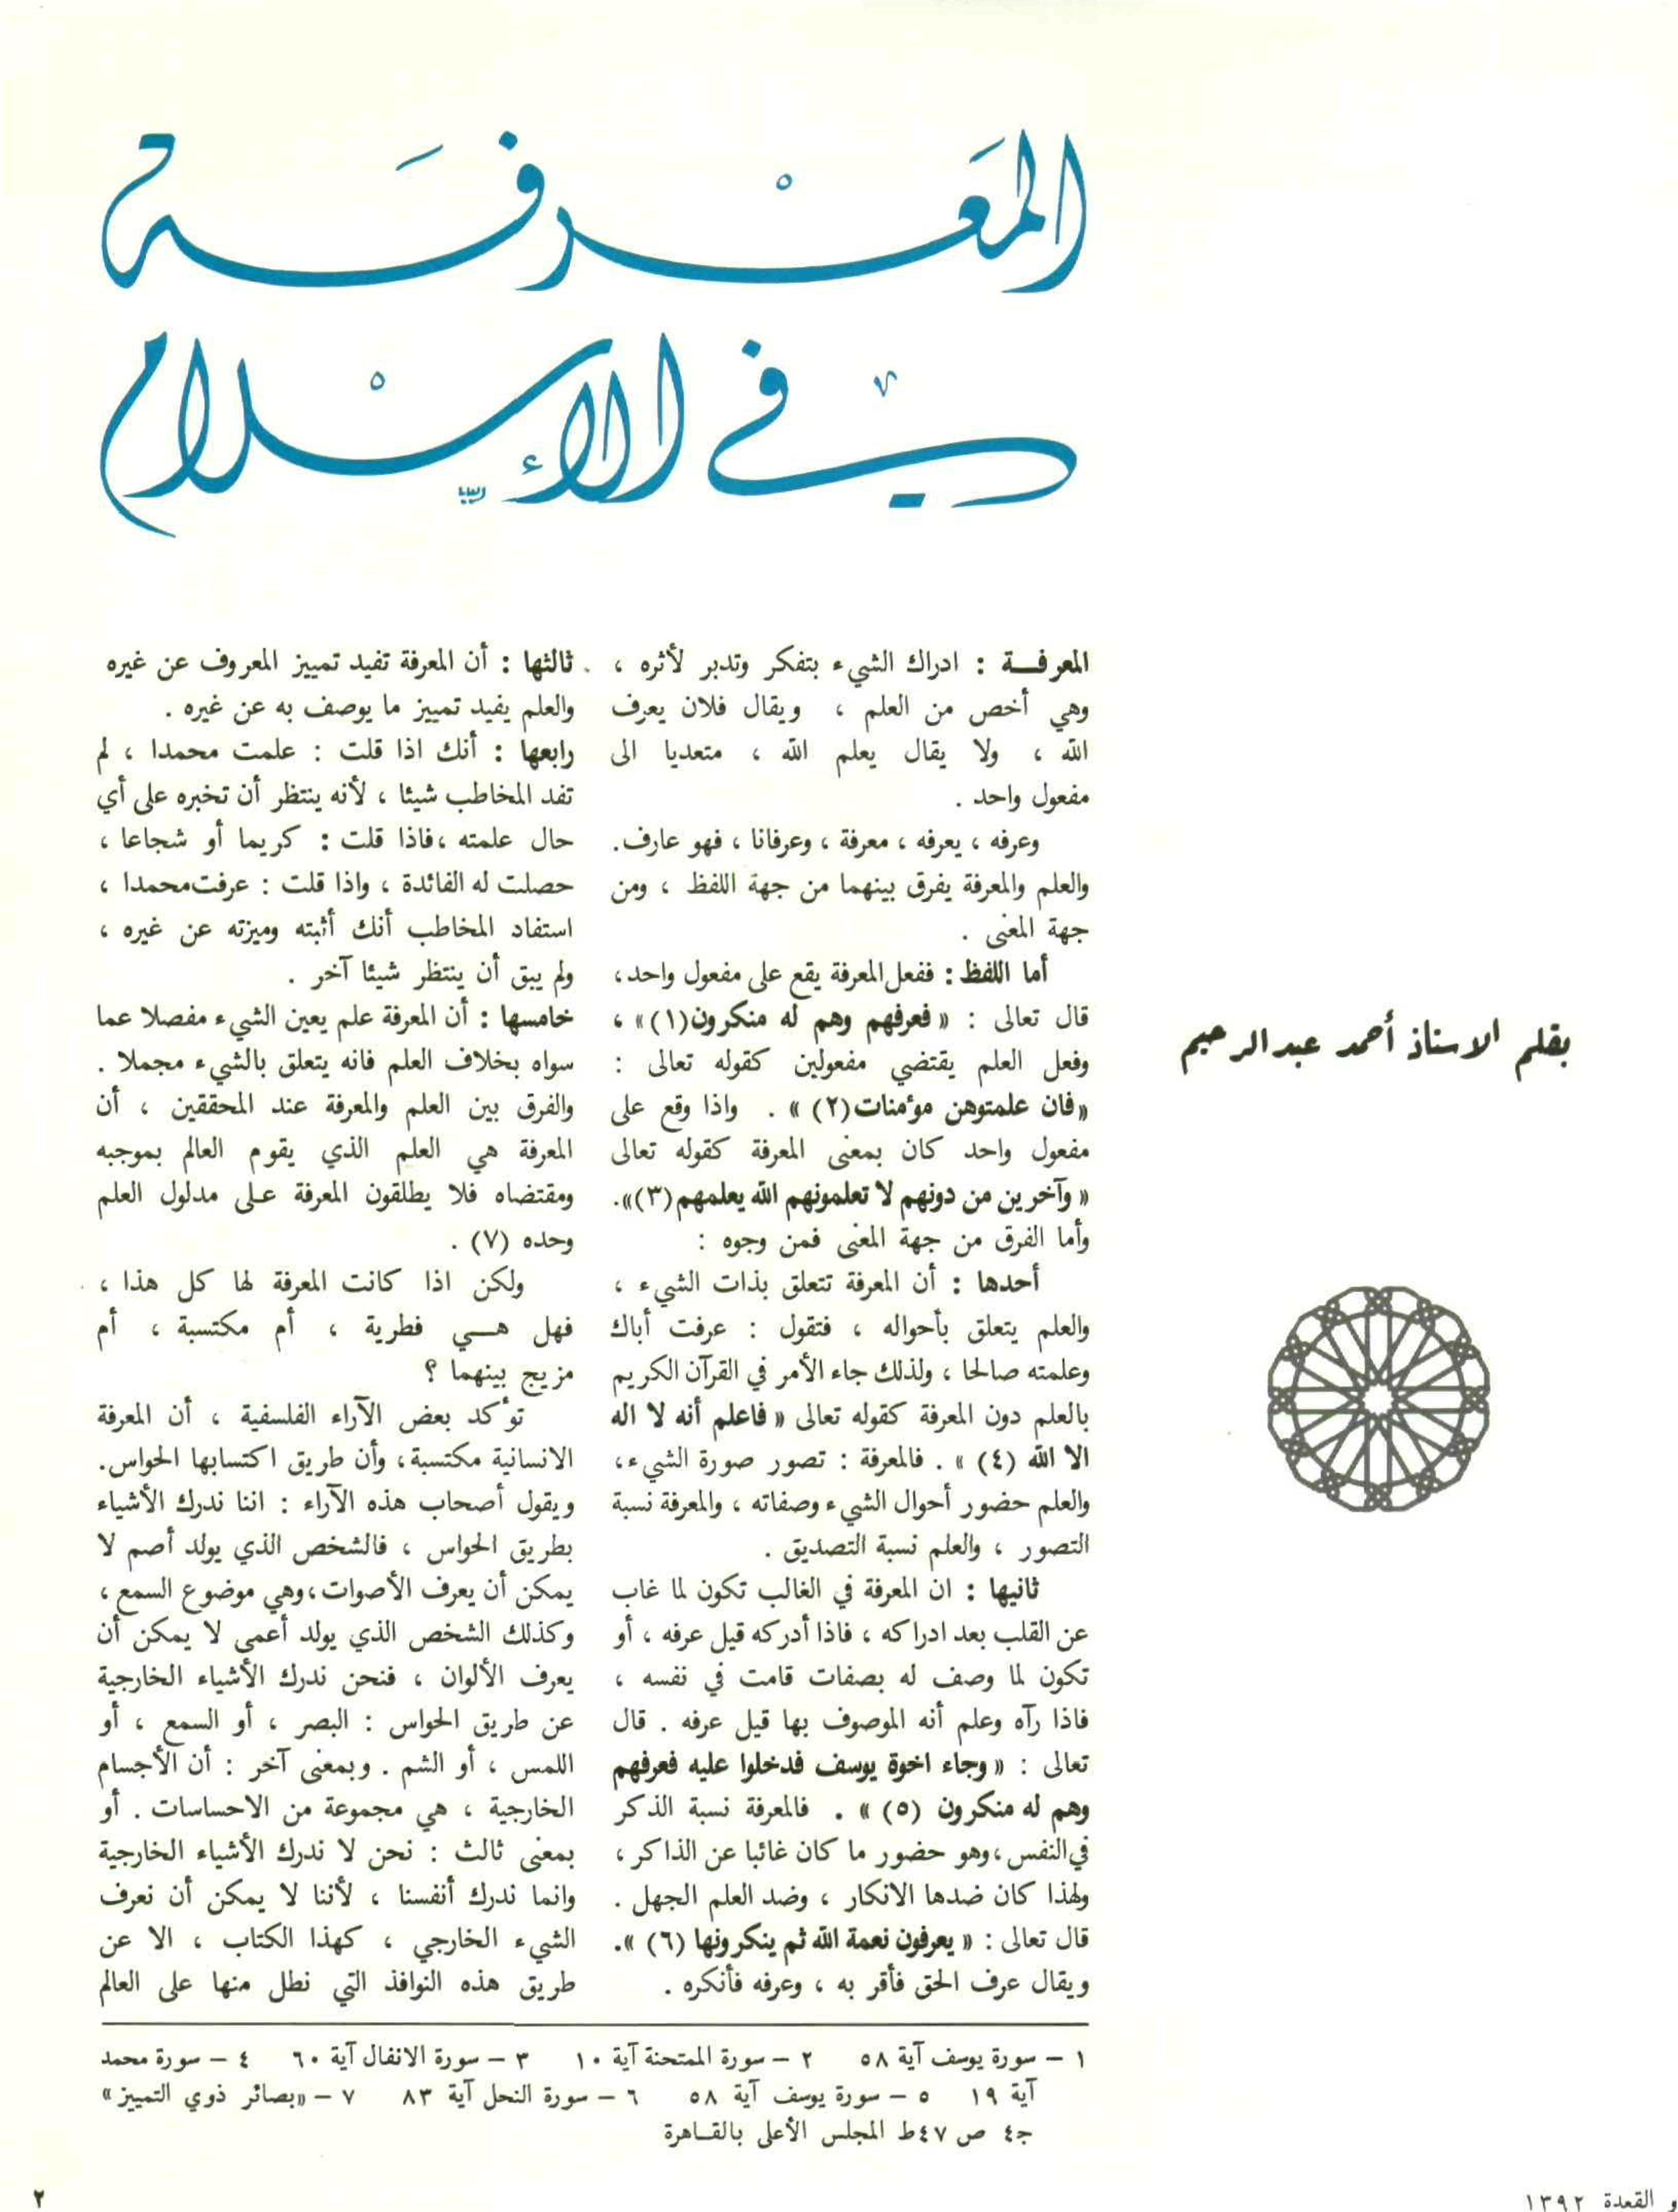 المَعْرفَة
في الإسْلام
بقلم الاستاذ أحمد عبد الرحيم
المعرفـــة : ادراك الشيء بتفكر وتدبر لأثره ،
وهي أخص من العلم ، ويقال فلان يعرف
الله ، ولا يقال يعلم الله ، متعديا الى
مفعول واحد .
وعرفه ، يعرفه ، معرفة ، وعرفانا ، فهو عارف.
والعلم والمعرفة يفرق بينهما من جهة اللفظ ، ومن
جهة المعنى .
أما اللفظ : ففعل المعرفة يقع على مفعول واحد،
قال تعالى : « فعرفهم وهم له منكرون(١) » ،
وفعل العلم يقتضي مفعولين كقوله تعالى :
«فان علمتوهن مؤمنات(٢) » . واذا وقع على
مفعول واحد كان بمعنى المعرفة كقوله تعالى
« وآخرين من دونهم لا تعلمونهم الله يعلمهم(٣)».
وأما الفرق من جهة المعنى فمن وجوه :
أحدها : أن المعرفة تتعلق بذات الشيء ،
والعلم يتعلق بأحواله ، فتقول : عرفت أباك
وعلمته صالحا ، ولذلك جاء الأمر في القرآن الكريم
بالعلم دون المعرفة كقوله تعالى « فاعلم أنه لا اله
الا الله (٤) » . فالمعرفة : تصور صورة الشيء،
والعلم حضور أحوال الشيء وصفاته ، والمعرفة نسبة
التصور ، والعلم نسبة التصديق .
ثانيها : ان المعرفة في الغالب تكون لما غاب
عن القلب بعد ادراكه ، فاذا أدركه قيل عرفه ، أو
تكون لما وصف له بصفات قامت في نفسه ،
فاذا رآه وعلم أنه الموصوف بها قيل عرفه . قال
تعالى : « وجاء اخوة يوسف فدخلوا عليه فعرفهم
وهم له منكرون (٥) » . فالمعرفة نسبة الذكر
في النفس ،وهو حضور ما كان غائبا عن الذاكر ،
ولهذا كان ضدها الانكار ، وضد العلم الجهل .
قال تعالى : « يعرفون نعمة الله ثم ينكرونها (٦) ».
ويقال عرف الحق فأقر به ، وعرفه فأنكره .
ثالثها : أن المعرفة تفيد تمييز المعروف عن غيره
والعلم يفيد تمييز ما يوصف به عن غيره .
رابعها : أنك اذا قلت : علمت محمدا ، لم
تفد المخاطب شيئا ، لأنه ينتظر أن تخبره على أي
حال علمته ،فاذا قلت : كريما أو شجاعا ،
حصلت له الفائدة ، واذا قلت : عرفت محمدا ،
استفاد المخاطب أنك أثبته وميزته عن غيره ،
ولم يبق أن ينتظر شيئا آخر .
خامسها : أن المعرفة علم يعين الشيء مفصلا عما
سواه بخلاف العلم فانه يتعلق بالشيء مجملا .
والفرق بين العلم والمعرفة عند المحققين ، أن
المعرفة هي العلم الذي يقوم العالم بموجبه
ومقتضاه فلا يطلقون المعرفة على مدلول العلم
وحده (٧) .
ولكن اذا كانت المعرفة لها كل هذا ،
فهل هــي فطرية ، أم مكتسبة ، أم
مزيج بينهما ؟
تؤكد بعض الآراء الفلسفية ، أن المعرفة
الانسانية مكتسبة، وأن طريق اكتسابها الحواس.
ويقول أصحاب هذه الآراء : اننا ندرك الأشياء
بطريق الحواس ، فالشخص الذي يولد أصم لا
يمكن أن يعرف الأصوات،وهي موضوع السمع ،
وكذلك الشخص الذي يولد أعمى لا يمكن أن
يعرف الألوان ، فنحن ندرك الأشياء الخارجية
عن طريق الحواس : البصر ، أو السمع ، أو
اللمس ، أو الشم . وبمعنى آخر : أن الأجسام
الخارجية ، هي مجموعة من الاحساسات . أو
بمعنى ثالث : نحن لا ندرك الأشياء الخارجية
وانما ندرك أنفسنا ، لأننا لا يمكن أن نعرف
الشيء الخارجي ، كهذا الكتاب ، الا عن
طريق هذه النوافذ التي نطل منها على العالم
١ – سورة يوسف آية ٥٨ ٢ – سورة الممتحنة آية ١٠ ٣ – سورة الانفال آية ٦٠ ٤ – سورة محمد
آية ١٩ ٥ – سورة يوسف آية ٥٨ ٦ – سورة النحل آية ٨٣ ٧ – «بصائر ذوي التمييز»
ج٤ ص ٤٧ط المجلس الأعلى بالقــاهرة
القعدة ١٣٩٢
٢